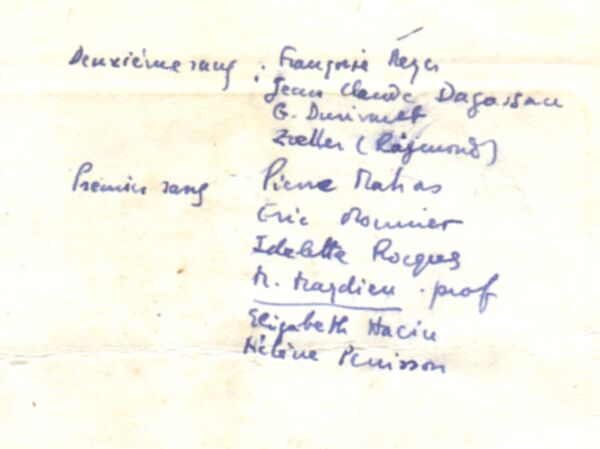 Deuxième rang : Françoise Meyer
Jean Claude Dagassan
G. Durivault
Zoeller (Raymond)
Premier rang Pierre Matras
Eric Monnier
Idelette Rocques
M. Mazdieu. prof
Elizabeth Haciu
Hélène Penisson